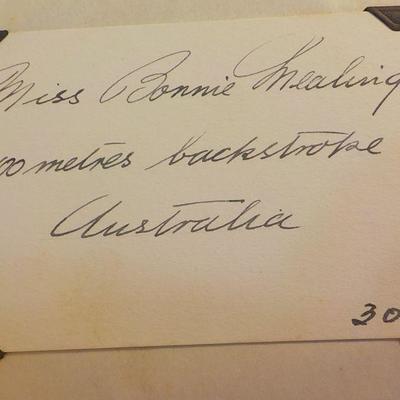 Miss Bonnie Mealing
00 metres backstroke
Australia
30